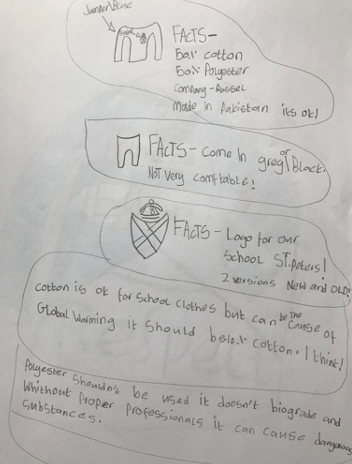 Jumper/Blue
FACTS-
50% cotton
50% Polyester
Company-Russel
Made in Pakistan its ok!
FACTS- Come In grey or Black.
Not Very comftable!
FACTS- Logo for our
School ST.Peters!
2 versions New and OLD!
Cotton is ok for School Clothes but can be The Cause of
Global Warming it Should be cotton. I think!
Polyester Shouldn't be used it doesn't biograde and
Whithout Proper Professionals it can cause dangerous
Substances.